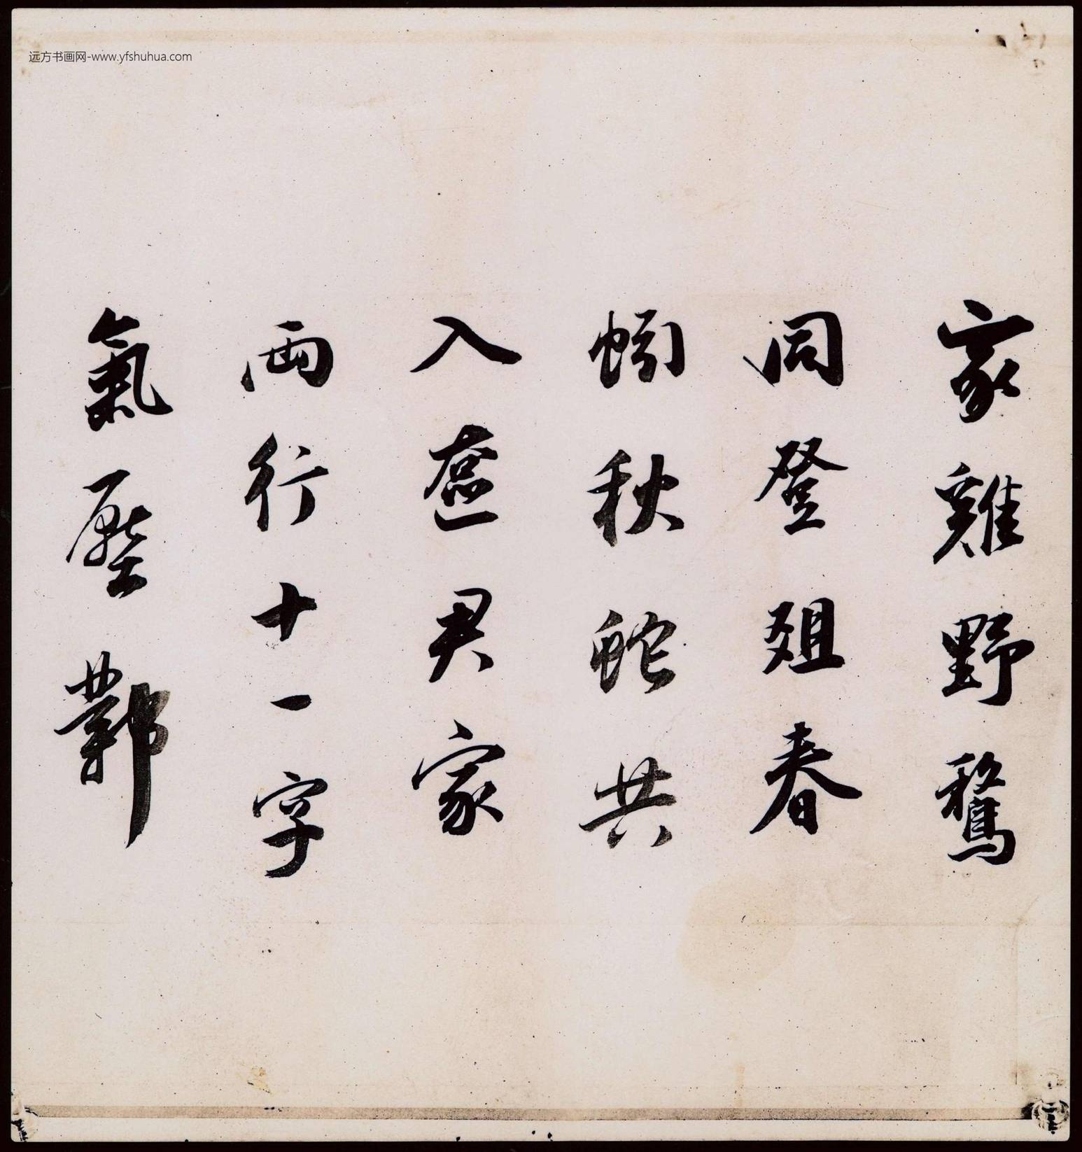 家雞野鶩
同登俎春
蚓秋蛇共
入奩君家
兩行十一字
氣壓鄴
远方书画网-www.yfshuhua.com